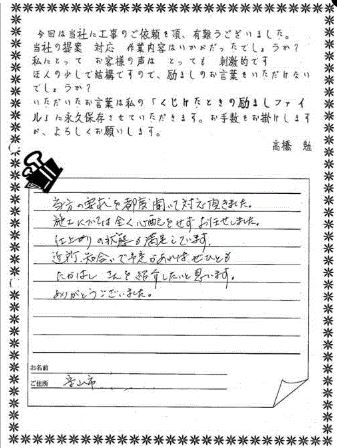 今回は当社に工事のご依頼を頂、有難うございました。
当社の提案 対応 作業内容はいかがだったでしょうか?
私にとって お客様の声は とっても 刺激的です
ほんの少しで結構ですので、励ましのお言葉をいただけない
でしょうか?
いただいたお言葉は私の「くじけたときの励ましファイ
ル」に永久保存させていただきます。お手数をお掛けします
が、よろしくお願いします。
高橋 勉
当方の要求を都度聞いて対応頂きました。
施工については全く心配をせずお任せしました。
仕上がりの状態も満足しています。
近所、知合いで予定があればぜひとも
たかはし さんを紹介したいと思います。
ありがとうございました。
お名前
ご住所 市